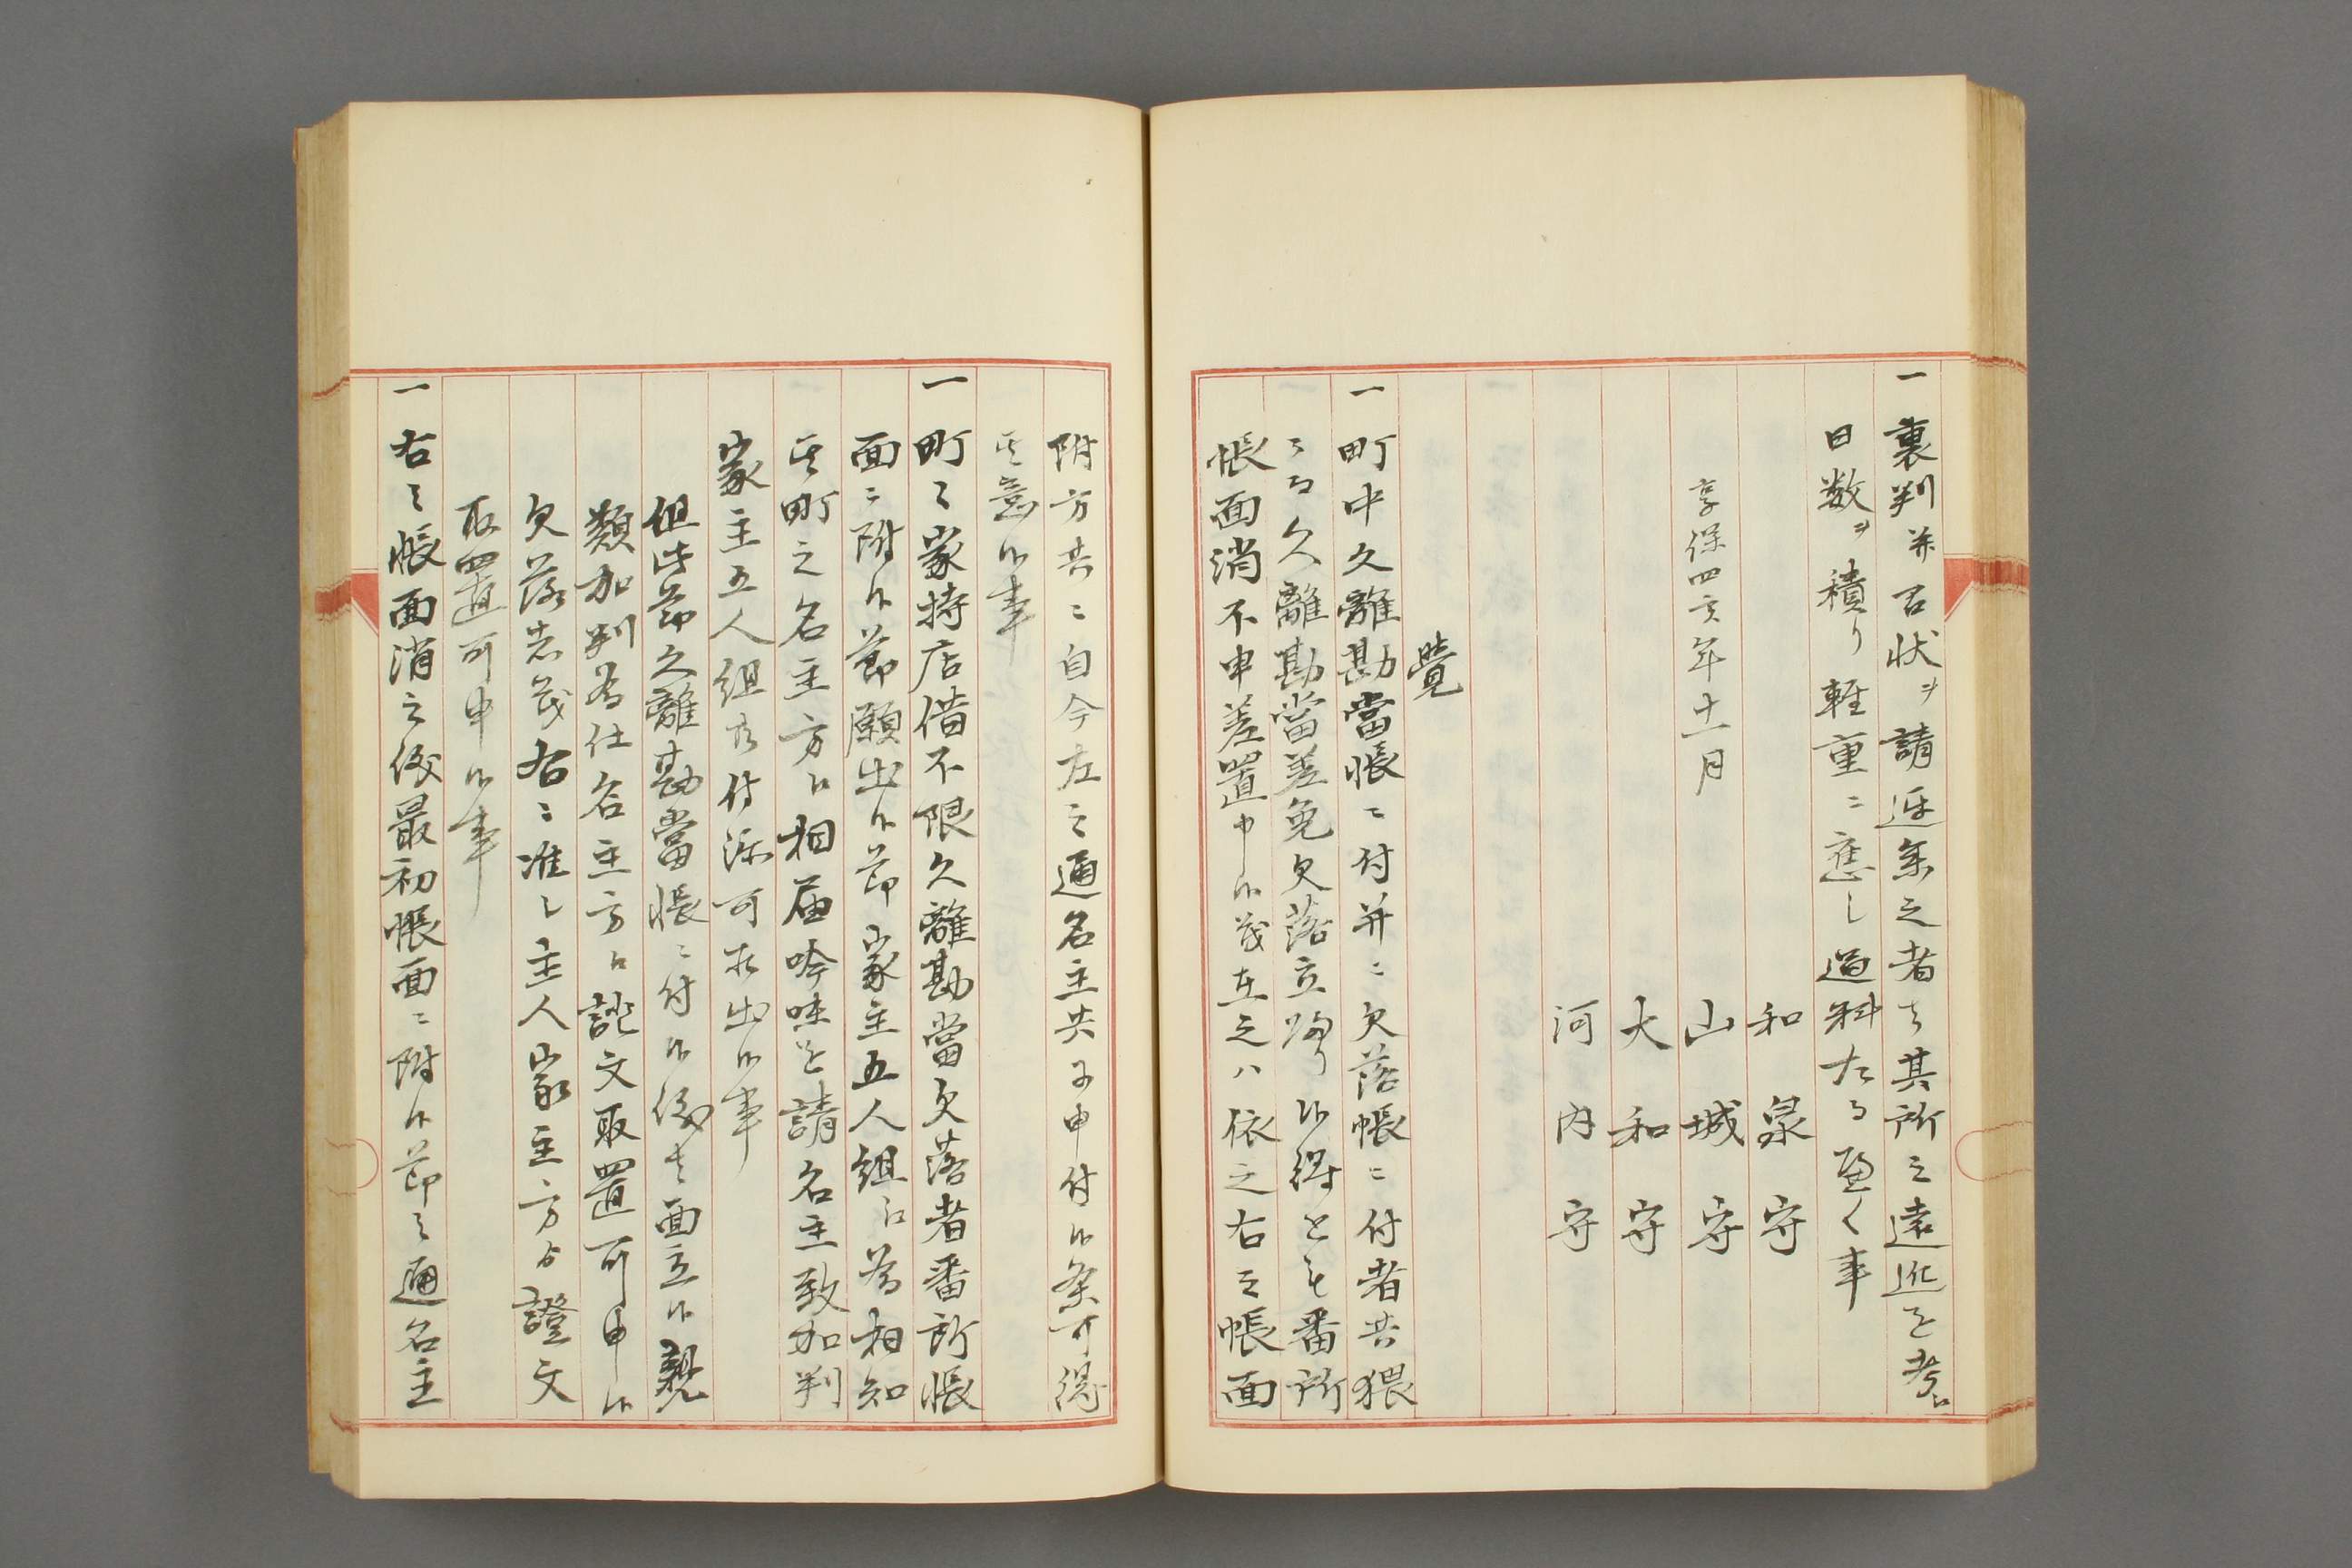 一裏判并召状ヲ請遅参之者ハ其所之遠近を考ヘ
日数ヲ積り軽重ニ應し過料たる盈く事
享保四亥年十一月
和泉守
山城守
大和守
河内守
覺
一町中久離勘當帳ニ付并ニ欠落帳ニ付者共猥
ニ而久離勘當差免欠落立帰り候得とも番所
帳面消不申差置申候義在之ハ依之右之帳面
附方共ニ自今左之通名主共可申付候条可得
其意候事
一町々家持店借不限久離勘當欠落者番所帳
面ニ附候節願出候節家主五人組ニ為相知
其町之名主方江相届吟味を請名主致加判
家主五人組 付添可罷出候事
但此節久離勘當帳ニ付候儀者面立候親
類加判為仕名主方江證文取置可申候
欠落者義右ニ准し主人家主方ゟ證文
取置可申候事
一右之帳面消之儀最初帳面ニ附候節之通名主